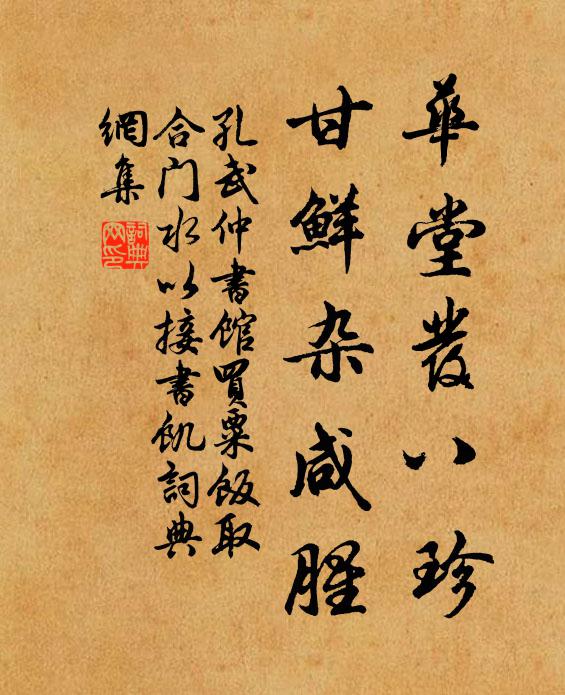 華堂叢八珍
甘鮮杂咸腥
孔武仲書館買粟飯取
合门水以接書飢詞典
網集
詞典
网印